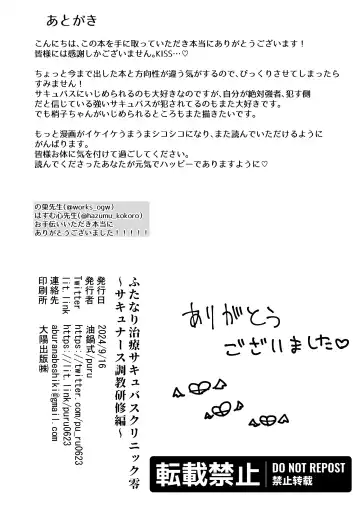 あとがき
こんにちは、この本を手に取っていただき本当にありがとうございます！
皆様には感謝しかございません。KISS…♡
ちょっと今まで出した本と方向性が違う気がするので、びっくりさせてしまったら
すみません！
サキュバスにいじめられるのも大好きなのですが、自分が絶対強者、犯す側
だと信じている強いサキュバスが犯されてるのもまた大好きです。
でも梢子ちゃんがいじめられるところもまた描きたいです。
もっと漫画がイケイケうまうまシコシコになり、また読んでいただけるように
がんばります。
皆様お体に気を付けて過ごしてください。
読んでくださったあなたが元気でハッピーでありますように♡
の栗先生(@works_ogw)
はずむ心先生(@hazumu_kokoro)
お手伝いいただき本当に
ありがとうございました！！！！！
ふたなり治療サキュバスクリニック零
～サキュナース調教研修編～
発行日 2024/9/16
発行者 油鍋式/puru
Twitter https://twitter.com/pu_ru0623
lit.link https://lit.link/puru0623
連絡先 aburanabeshiki@gmail.com
印刷所 大陽出版㈱
ありがとう
ございました♡
転載禁止
DO NOT REPOST
禁止转载